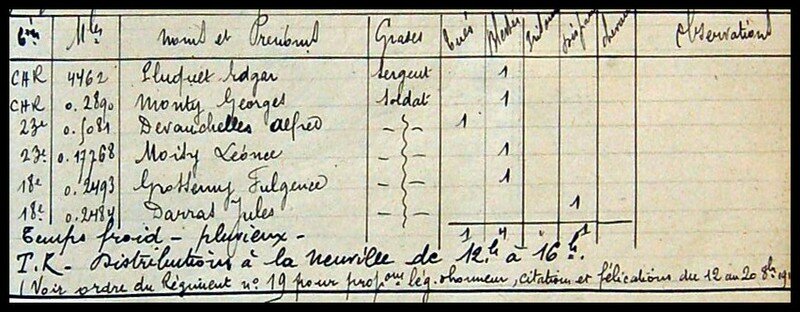 Cies Mles Noms et Prénoms Grades Tués Blessés Disparus Observations
CHR 4462 Pluquet Edgar sergent 1
CHR 0.2890 Monty Georges soldat 1
23e 0.5081 Devauchelles Alfred — 1
23e 0.17768 Moity Léonce — 1
18e 0.2493 Grossemy Fulgence — 1
18e 0.2484 Darras Jules — 1
1 4 " 1
Temps froid - pluvieux -
T.R - Distributions à la Neuville de 12h à 16h.
(Voir ordre du Régiment no 19 pour propons lég. honneur, citations et félications du 12 au 20 8bre